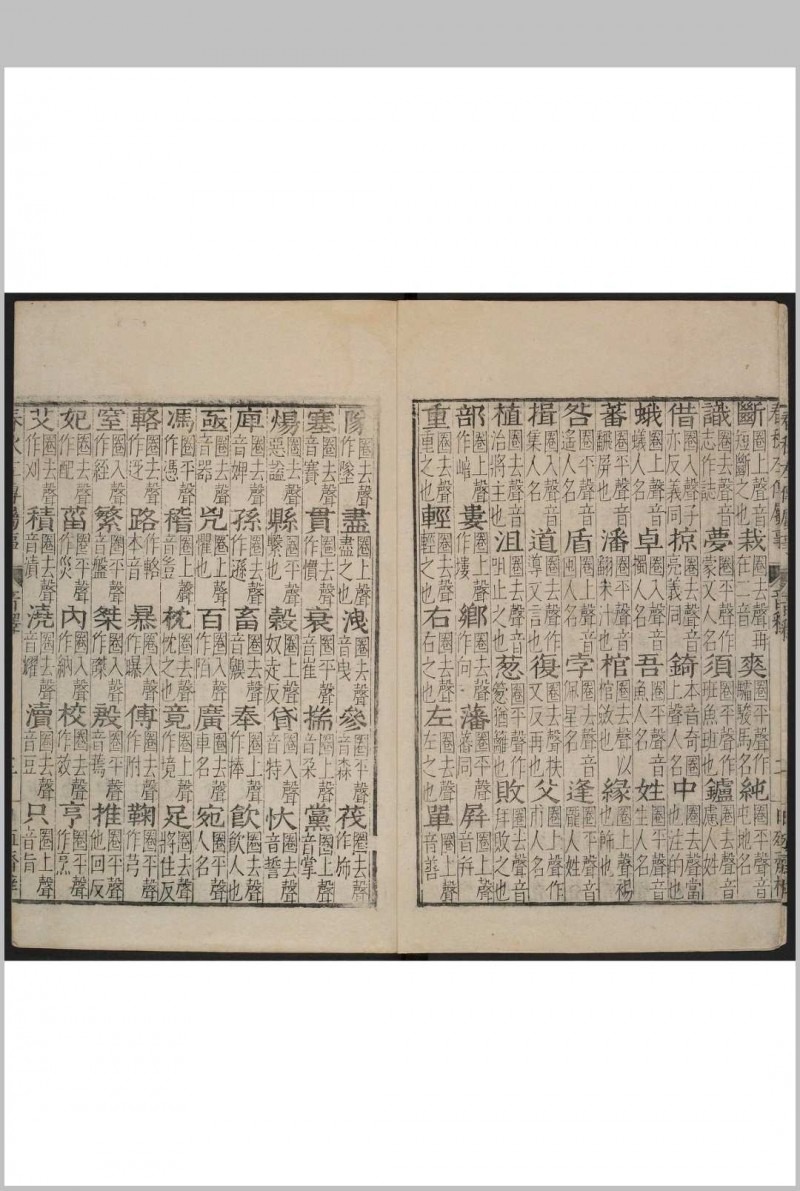 斷圈上聲音短斷之也栽圈去聲再在二音爽圈平聲作驦駿馬名純屯地名
識圈去聲音志作誌夢圈平聲作蒙又人名須圈平聲作班魚班也鑪圈去聲音慮人姓
借圈入聲子亦反義同掠圈去聲音亮義同錡本音奇圈上聲人名中圈去聲當也注的也
蛾圈上聲音蟻人名卓圈入聲音濁人名吾圈平聲音魚人名姓圈平聲音生人名
蕃圈平聲音翻屏也潘圈去聲音翻米汁也棺圈去聲以棺斂也緣圈上聲褐也飾也
咎圈平聲音遙人名盾圈上聲音囤人名孛圈去聲音佩星名逢圈平聲音龎人姓
揖圈入聲音集人名道圈去聲音導又言也復圈去聲扶又反再也父圈上聲作甫人名
植圈去聲音治將主也沮圈上聲音咀止之也葱圈平聲作窻猶籬也敗圈去聲音拜敗之也
部圈上聲作婁圈上聲作塿鄉圈去聲作向藩圈平聲番同屏圈上聲音并
重圈去聲重之也輕圈去聲輕之也右圈去聲右之也左圈去聲左之也單圈上聲音善
隊圈去聲作墜盡圈上聲盡之也洩圈去聲音曳參圈平聲音森茷圈去聲作斾
塞圈去聲音賽貫圈去聲作慣衰圈平聲音崔揣圈上聲音朶黨圈上聲音掌
煬圈去聲惡謚縣圈平聲繫也穀圈上聲奴走反貸圈入聲音特忕圈去聲音誓
庳圈去聲音婢孫圈去聲作遜畜圈去聲音奉圈上聲作捧飲圈去聲飲人也
亟圈去聲音器兇圈上聲懼也百圈入聲作陌廣圈去聲車名宛圈平聲人名
馮圈平聲作憑稽圈上聲音啓枕圈去聲枕之也竟圈上聲作境足圈去聲將住反
輅圈去聲作迓路作輅本音暴圈入聲作曝傅圈去聲作附鞠圈平聲作芎
窒圈入聲作絰繁圈平聲音盤桀圈入聲作磔殷圈平聲音蔫推圈平聲他回反
妃圈去聲作配菑圈平聲作災內圈入聲作納校圈去聲作效亨圈平聲作烹
艾圈去聲作刈積圈去聲音漬澆圈去聲音耀瀆圈去聲音豆只圈上聲音旨